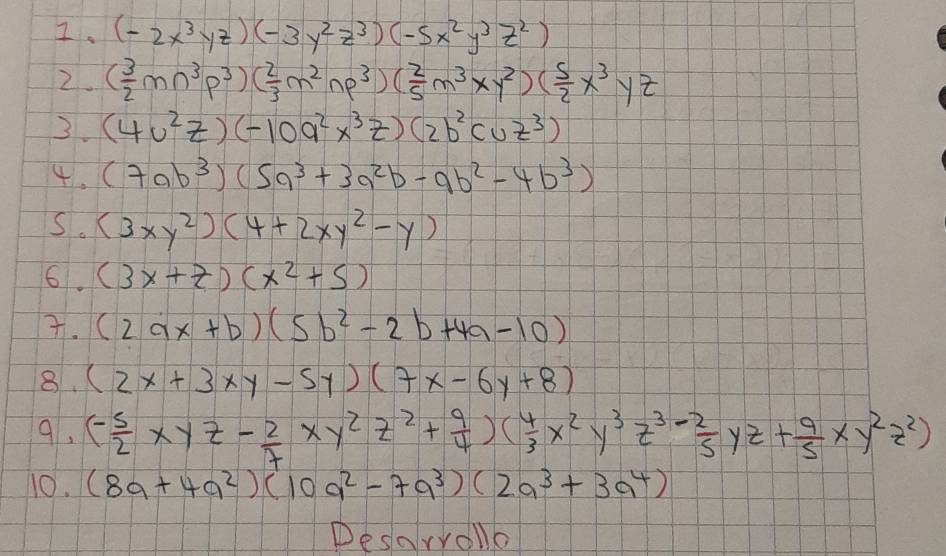 1. (-2x³yz)(-3y²z³)(-5x²y³z²)
2. (3/2 mn³p³)(2/3 m²np³)(2/5 m³xy²)(5/2 x³yz
3. (4u²z)(-10a²x³z)(2b²cuz³)
4. (7ab³)(5a³+3a²b-ab²-4b³)
5. (3xy²)(4+2xy²-y)
6. (3x+z)(x²+5)
7. (2ax+b)(5b²-2b+4a-10)
8. (2x+3xy-5y)(7x-6y+8)
9. (-5/2 xyz - 2/7 xy²z² + 9/4)(4/3 x²y³z³ - 2/5 yz + 9/5 xy²z²)
10. (8a+4a²)(10a²-7a³)(2a³+3a⁴)
Desarrollo